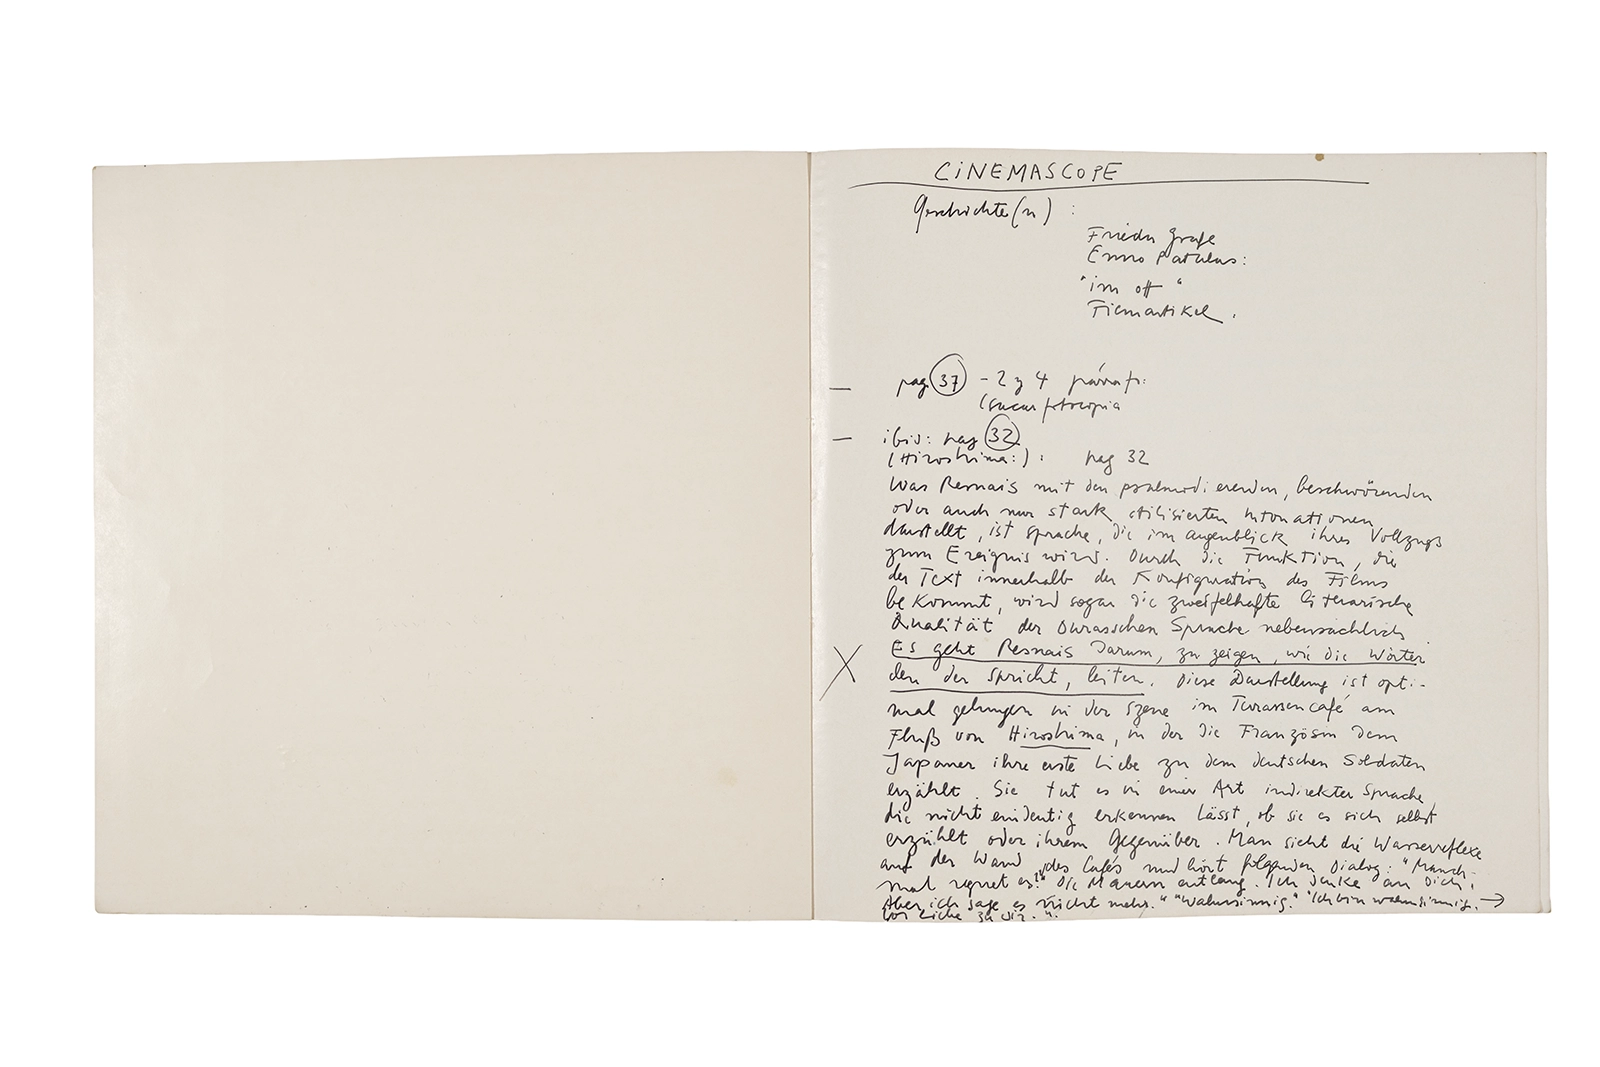 CINEMASCOPE
Geschichte(n) :
Frieda Grafe
Enno Patalas:
"im off"
Filmartikel.
pag 37 - 2 y 4 párrafo:
(sacar fotocopia
ibis: pag 32
(Hiroshima:): pag 32
Was Resnais mit den psalmodierenden, beschwörenden
oder auch nur stark stilisierten Intonationen
darstellt, ist Sprache, die im augenblick ihres Vollzugs
zum Ereignis wird. Durch die Funktion, die
der Text innerhalb der Konfiguration des Films
bekommt, wird sogar die zweifelhafte literarische
Qualität der Durasschen Sprache nebensächlich.
Es geht Resnais darum, zu zeigen, wie die Wörter
den der spricht, leiten. Diese Darstellung ist opti-
mal gelungen in der Szene im Terassencafé am
Fluß von Hiroshima, in der die Französin dem
Japaner ihre erste Liebe zu dem deutschen Soldaten
erzählt. Sie tut es in einer Art indirekter Sprache,
die nicht eindeutig erkennen lässt, ob sie es sich selbst
erzählt oder ihrem Gegenüber. Man sieht die Wasserreflexe
auf der Wand des Cafés und hört folgenden Dialog: "Manch-
mal regnet es?" "Die Mauern entlang. Ich denke an Dich.
Aber ich sage es nicht mehr." "Wahnsinnig." "Ich bin wahnsinnig →
vor Liebe zu Dir.".